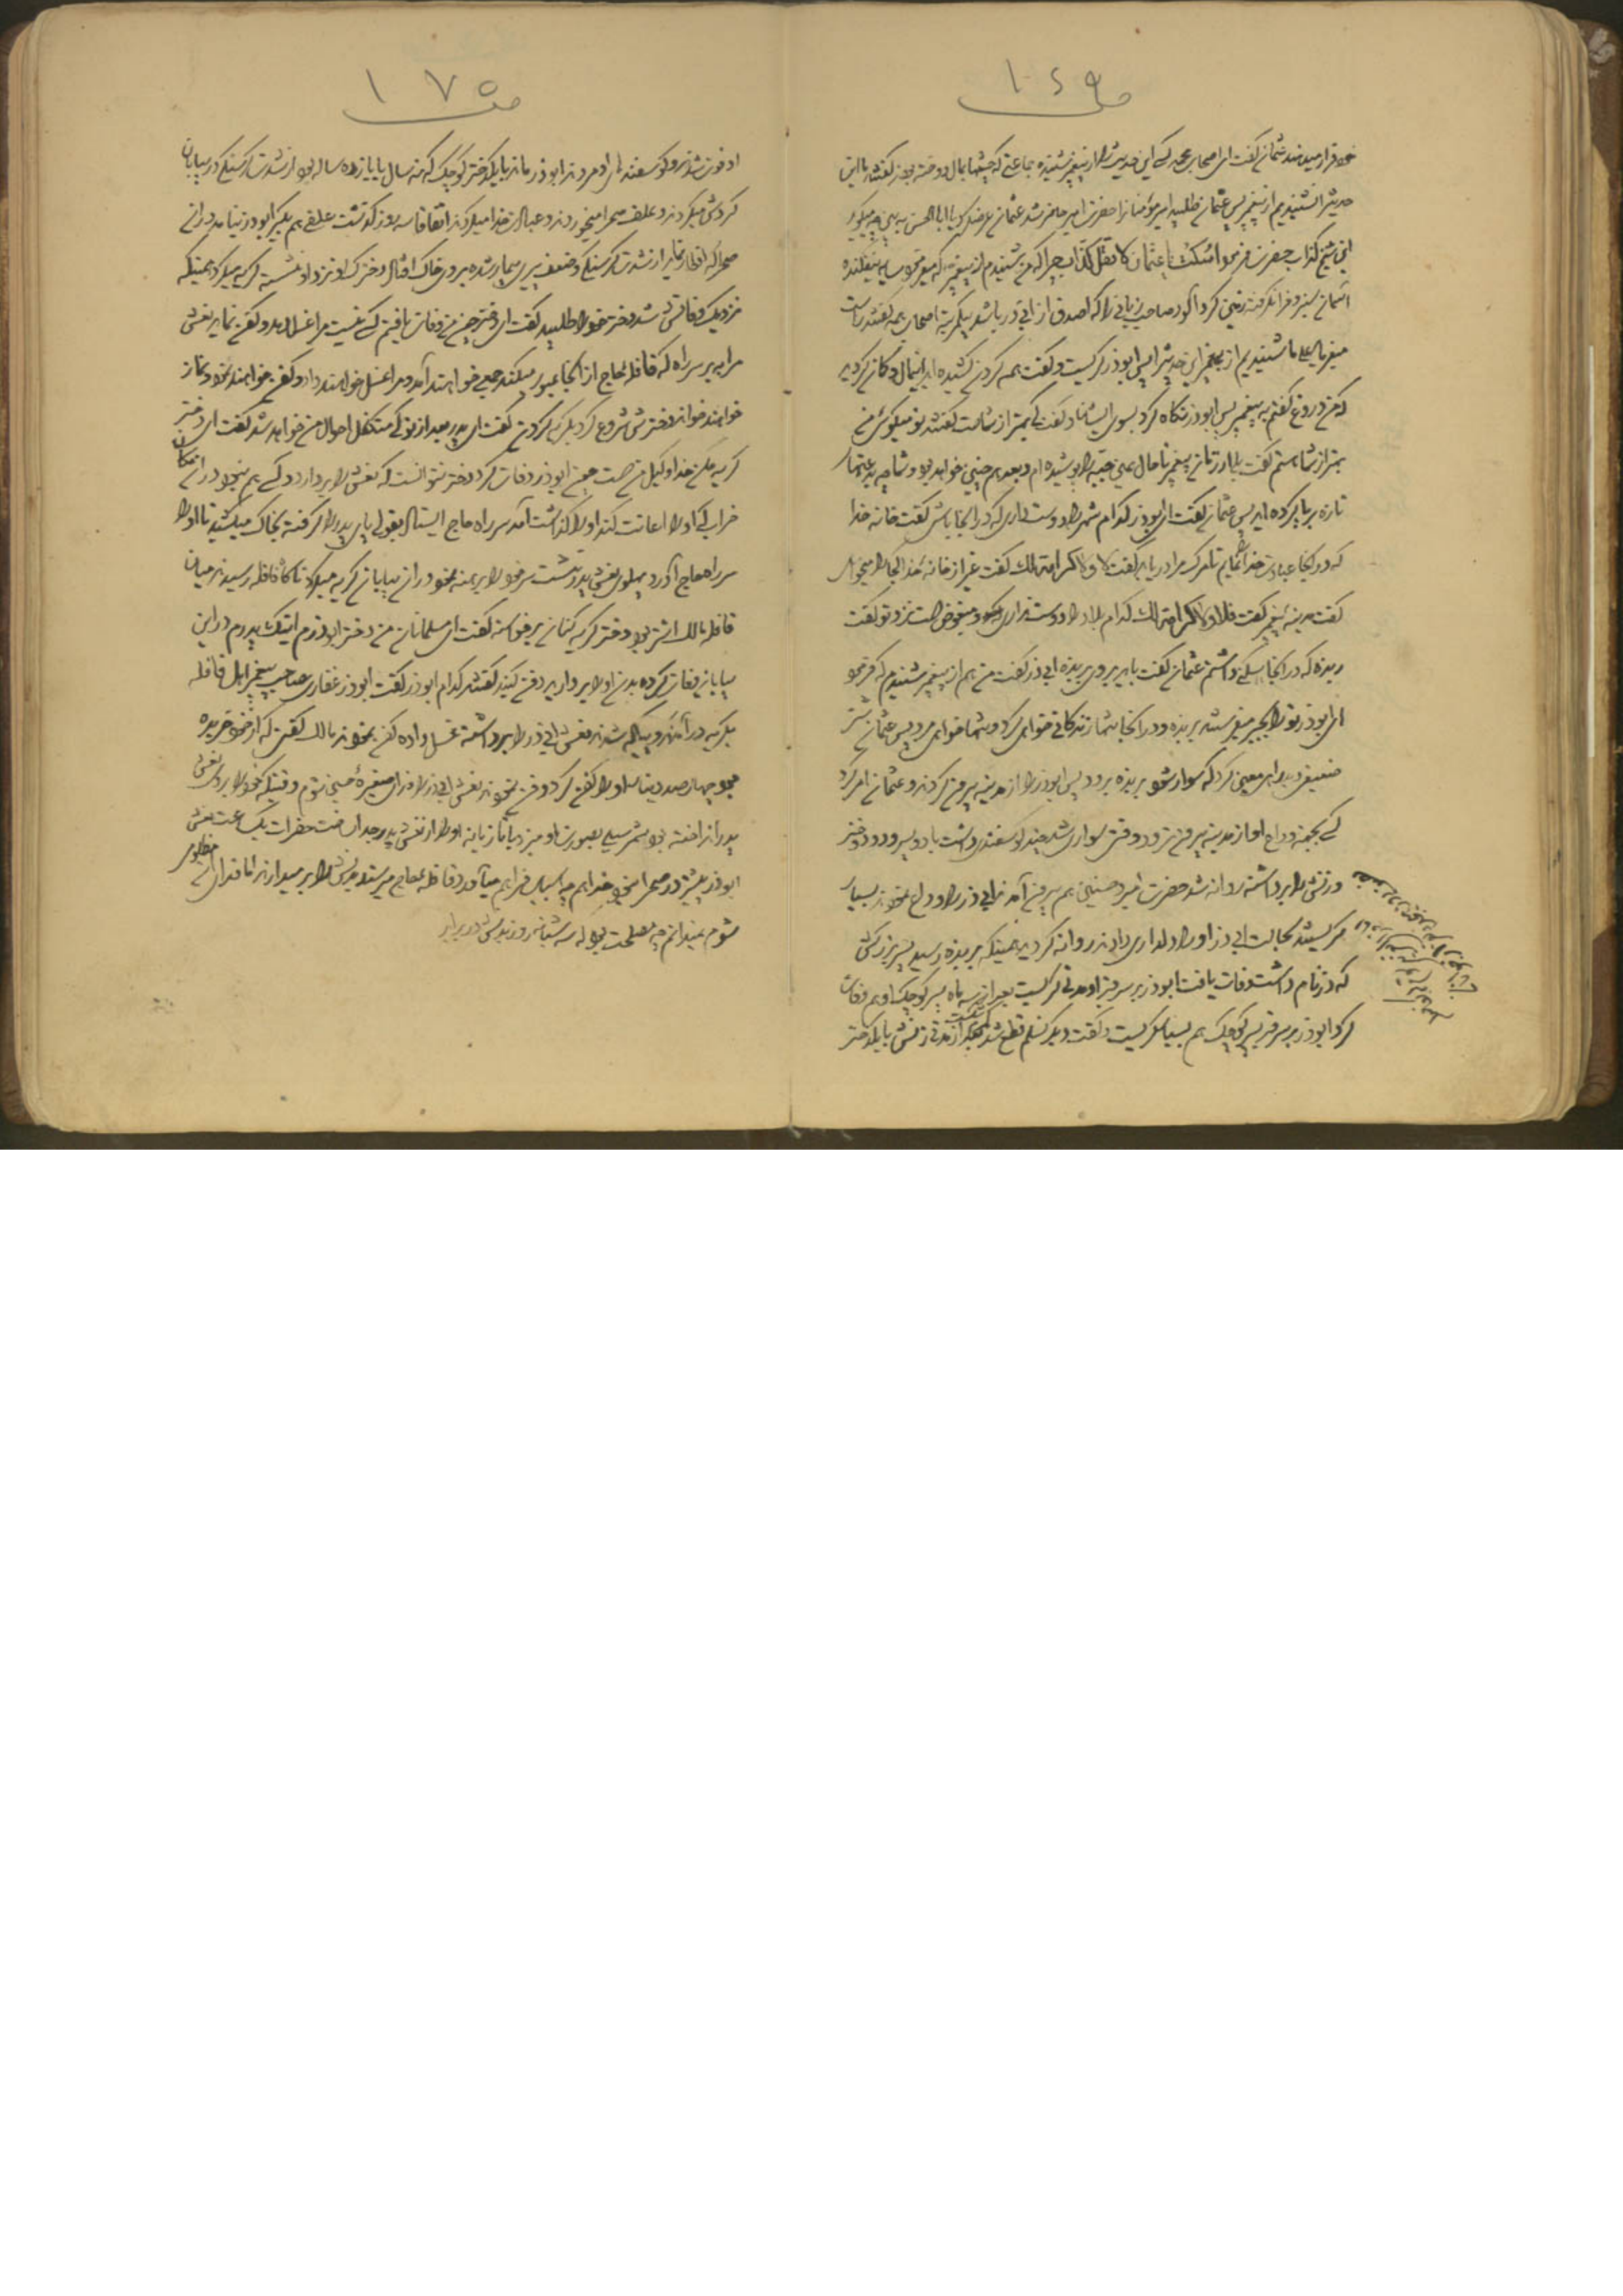 ١٤٩
خود قرار میدهند عثمان گفت ای اصحاب محمد کسی این حدیث را از پیغمبر شنیده جماعتی که چشمها بمال دوخته بودند گفتند ما این
حدیث را نشنیدیم از پیغمبر پس عثمان طلبید امیر مؤمنان را حضرت امیر حاضر شد عثمان عرض کرد یا ابا الحسن ببین چه میگوید
این شیخ کذاب حضرت فرمود اسکت یا عثمان لا تقل کذاب چرا که من شنیدم از پیغمبر که میفرمود سایه نیفکنده
آسمان سبز و فرا نگرفته زمین گرد آلود صاحب زبانی را که اصدق از ابی ذر باشد یکمرتبه اصحاب همه گفتند راست
میفرماید علی ما شنیدیم از پیغمبر این حدیث را پس ابوذر گریست و گفت همه گردن کشیده اید باین مال و گمان کردید
که من دروغ گفتم به پیغمبر پس ابوذر نگاه کرد بسوی ایشان و گفت کی بهتر از شماست گفتند تو میگوئی من
بهتر از شما هستم گفت بلی از زمان پیغمبر تا حال همین جبه را پوشیده ام و بعد هم چنین خواهد بود و شما چه بدعتها
تازه برپا کرده اید پس عثمان گفت ای ابوذر کدام شهر را دوست داری که در آنجا باشی گفت خانه خدا
که در آنجا عبادت خدا نمایم تا مرگ مرا دریابد گفت لا ولا کرامة لک گفت غیر از خانه خدا کجا را میخواهی
گفت مدینه پیغمبر گفت فلا ولا کرامة لک کدام بلاد را دوست نداری و مبغوض است نزد تو گفت
ربذه که در آنجا مسکن داشتم عثمان گفت باید بروی بربذه ابی ذر گفت من هم از پیغمبر شنیدم که فرمود
ای ابوذر تو را بجبر میفرستند بربذه و در آنجا تنها زندگانی خواهی کرد و تنها خواهی مرد پس عثمان شتر
ضعیفی و بد راهی معین کرد که سوار شود بربذه برود پس ابوذر را از مدینه بیرون کردند و عثمان امر کرد
کسی بجهة وداع او از مدینه بیرون نرود وقتی سوار شد چند گوسفندی داشت با دو پسر و دو دختر
و زنش را برداشته روانه شد حضرت امیر و حسنین هم بیرون آمدند ابی ذر را وداع نمودند بسیار
گریستند بحالت ابی ذر او را دلداری دادند روانه گردید همینکه بربذه رسید پسر بزرگش
که ذر نام داشت وفات یافت ابوذر بر سر قبر او مدتی گریست بعد از سه ماه پسر کوچک او هم وفات
کرد ابوذر بر سر قبر پسر کوچک هم بسیار گریست و گفت دیگر نسلم قطع شد بعد از مدتی زنش با یکدختر
١٧٥
او فوت شدند و گوسفندهای او مردند ابوذر ماند با یکدختر کوچک که نه سال یا یازده ساله بود از شدت گرسنگی در بیابان
گردش میکردند و علف صحرا میخوردند و عبادت خدا میکردند اتفاقا سه روز گذشت علفی هم بگیر ابوذر نیامد در آن
صحرا که افطار نماید از شدت گرسنگی و ضعف پیری بیمار شده بر روی خاک افتاد دخترک او نزد او نشسته گریه میکرد همینکه
نزدیک وفاتش شد دختر خود را طلبید گفت ای دختر چون من وفات یافتم کسی نیست مرا غسل بدهد و کفن نماید نعش
مرا ببر سر راه که قافله حاج از آنجا عبور میکند جمعی خواهند آمد و مرا غسل خواهند داد و کفن خواهند نمود و نماز
خواهند خواند دخترش شروع کرد بگریه کردن گفت ای پدر بعد از تو کی متکفل احوال من خواهد شد گفت ای دختر
گریه مکن خدا وکیل من است چون ابوذر وفات کرد دختر نتوانست که نعش را بردارد و کسی هم نبود در آن مکان
خراب که او را اعانت کند او را گذاشت آمد سر راه حاج ایستاد بقولی پای پدر را گرفته بخاک میکشید تا او را
سر راه حاج آورد پهلوی نعش پدر نشست سر خود را برهنه نمود در آن بیابان گریه میکرد تا گاه قافله رسیدند میان
قافله مالک اشتر بود دختر گریه کنان برخواسته گفت ای مسلمانان من دختر ابوذرم اینک پدرم در این
بیابان وفات کرده بدن او را بردارید دفن کنید گفتند کدام ابوذر گفت ابوذر غفاری صاحب پیغمبر اهل قافله
بگریه در آمدند و پیاده شدند نعش ابی ذر را برداشته غسل داده کفن نمودند مالک کفنی که از خود خریده
بود چهار صد دینار او را کفن کرد و دفن نمودند نعش ابی ذر را فدای صغیره حسین شوم وقتیکه خود را بر روی نعش
پدر انداخته بود شمر سیلی بصورت او میزد با تازیانه او را از نعش پدر جدا ساخت حضرات یک ساعت نعش
ابوذر بیشتر در صحرا نبود خدا هم چه اسباب فراهم میآورد قافله حاج میرسند نعش را بر میدارند اما فدای مظلومی
شوم نمیدانم چه مصلحت بود که سه شبانه روز بدنش در برابر